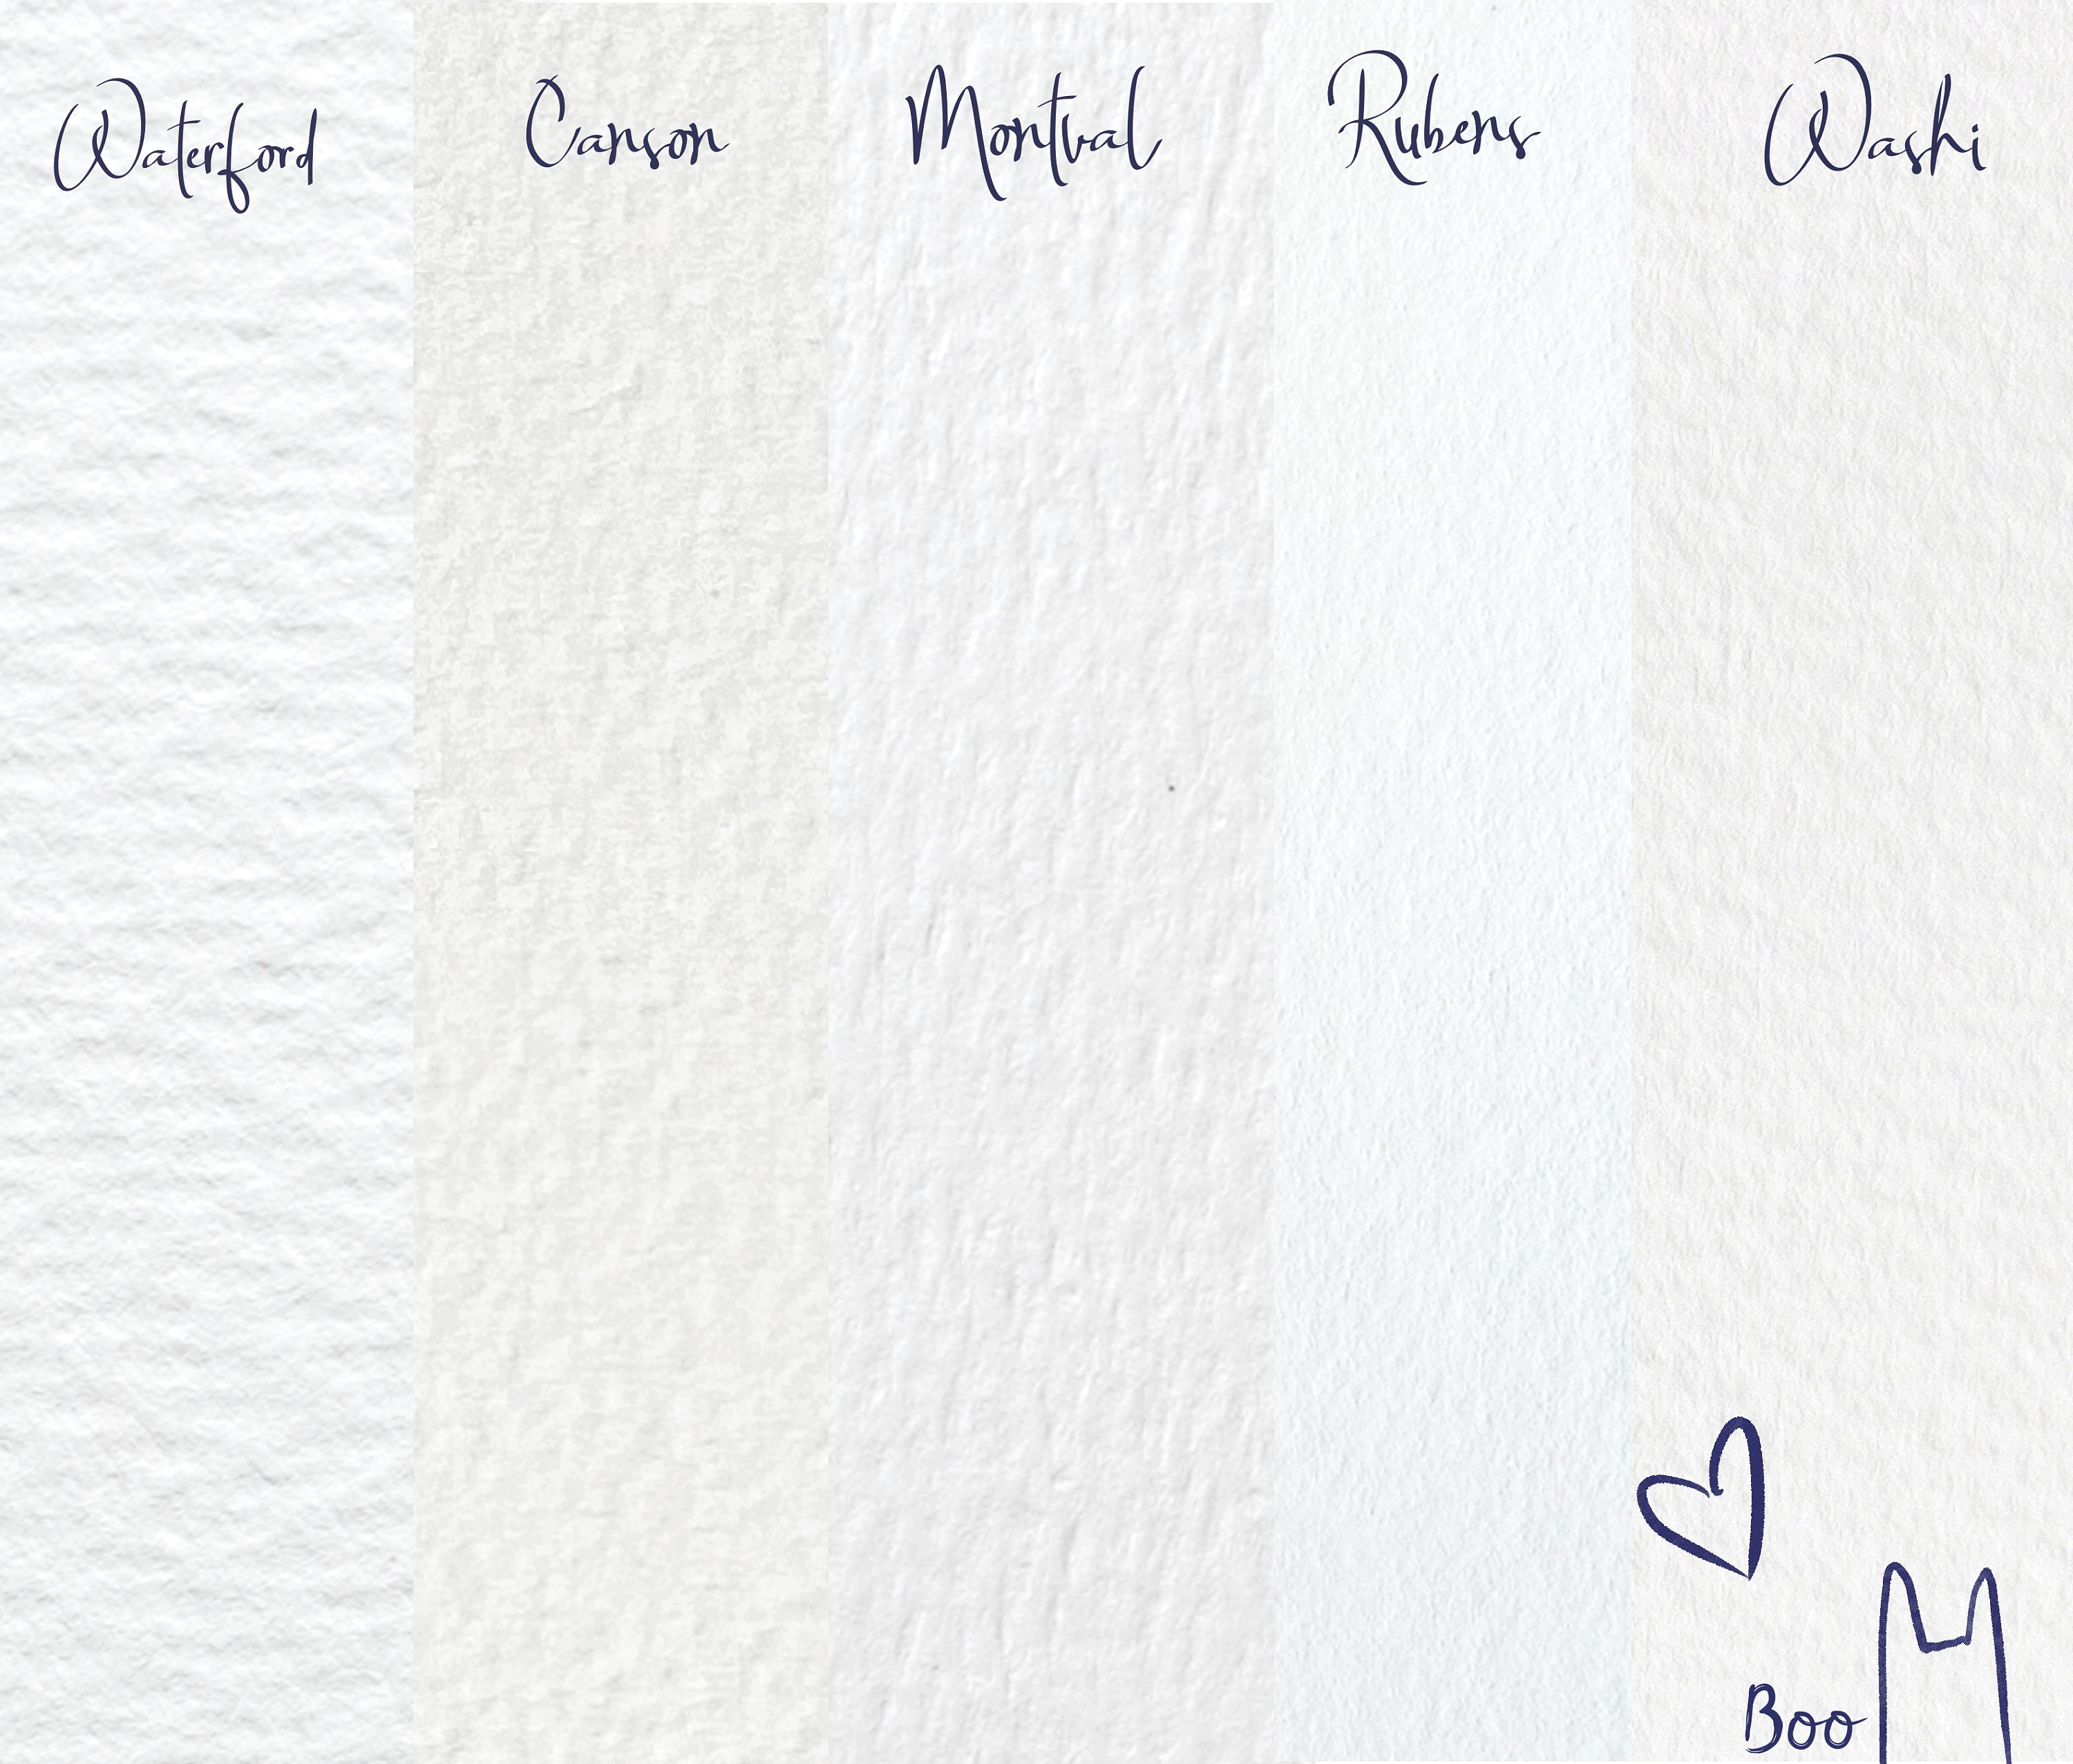 Waterford Canson Montval Rubens Washi
Boo